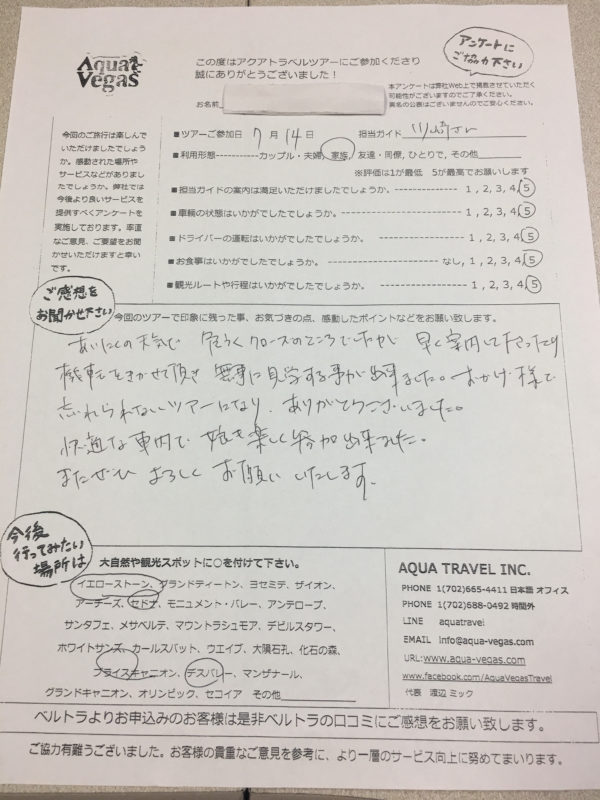 Aqua Vegas
この度はアクアトラベルツアーにご参加くださり
誠にありがとうございました！
アンケートに
ご協力下さい
本アンケートは弊社Web上で掲載させていただく
可能性がございますのでご了承ください。
実名の公表はございませんのでご安心ください。
お名前
今回のご旅行は楽しんで
いただけましたでしょう
か。感動された場所や
サービスなどがありまし
たでしょうか。弊社では
今後より良いサービスを
提供すべくアンケートを
実施しております。率直
なご意見、ご要望をお聞
かせいただけますと幸い
です。
■ツアーご参加日 7 月 14 日 担当ガイド 川崎さん
■利用形態-----------カップル・夫婦、家族、友達・同僚、ひとりで、その他
※評価は1が最低 5が最高でお願いします
■担当ガイドの案内は満足いただけましたでしょうか。 --------------- 1 , 2, 3, 4, 5
■車輛の状態はいかがでしたでしょうか。 --------------------- 1 , 2, 3, 4, 5
■ドライバーの運転はいかがでしたでしょうか。 ----------------- 1 , 2, 3, 4, 5
■お食事はいかがでしたでしょうか。 ------------------- なし, 1 , 2, 3, 4, 5
■観光ルートや行程はいかがでしたでしょうか。 ----------------- 1 , 2, 3, 4, 5
ご感想を
お聞かせ下さい
今回のツアーで印象に残った事、お気づきの点、感動したポイントなどをお願い致します。
あいにくの天気で 危うくクローズのところでしたが 早く案内して下さったり
機転をきかせて頂き 無事に見学する事が出来ました。おかげ様で
忘れられないツアーになり、ありがとうございました。
快適な車内で 娘も楽しく参加出来ました。
またぜひ よろしく お願い いたします。
今後
行ってみたい
場所は
大自然や観光スポットに○を付けて下さい。
イエローストーン、グランドティートン、ヨセミテ、ザイオン、
アーチーズ、セドナ、モニュメント・バレー、アンテロープ、
サンタフェ、メサベルテ、マウントラシュモア、デビルスタワー、
ホワイトサンズ、カールスバット、ウエイブ、大隕石孔、化石の森、
ブライスキャニオン、デスバレー、マンザナール、
グランドキャニオン、オリンピック、セコイア その他
AQUA TRAVEL INC.
PHONE 1(702)665-4411 日本語 オフィス
PHONE 1(702)688-0492 時間外
LINE aquatravel
EMAIL info@aqua-vegas.com
URL:www.aqua-vegas.com
www.facebook.com/AquaVegasTravel
代表 渡辺 ミック
ベルトラよりお申込みのお客様は是非ベルトラの口コミにご感想をお願い致します。
ご協力有難うございました。お客様の貴重なご意見を参考に、より一層のサービス向上に努めてまいります。